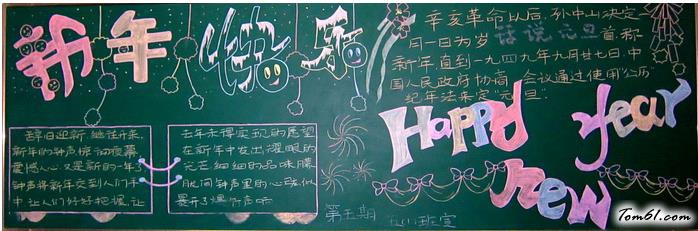 新年快乐
辞旧迎新,继往开来,
新年的钟声惊动夜幕,
震憾人心,又是新的一年了
钟声将新年交到人们手
中,让人们好好把握,让
去年未得实现的愿望
在新年中发出耀眼的
光芒,细细的品味朦
胧间钟声里的心弦似
第五期
班宣
辛亥革命以后,孙中山决定
月一日为岁首,称
话说元旦
新年直到一九四九年九月廿七日,中
国人民政府协商会议通过使用"公历
纪年法来定"元旦"
Happy new year
Tom61.com